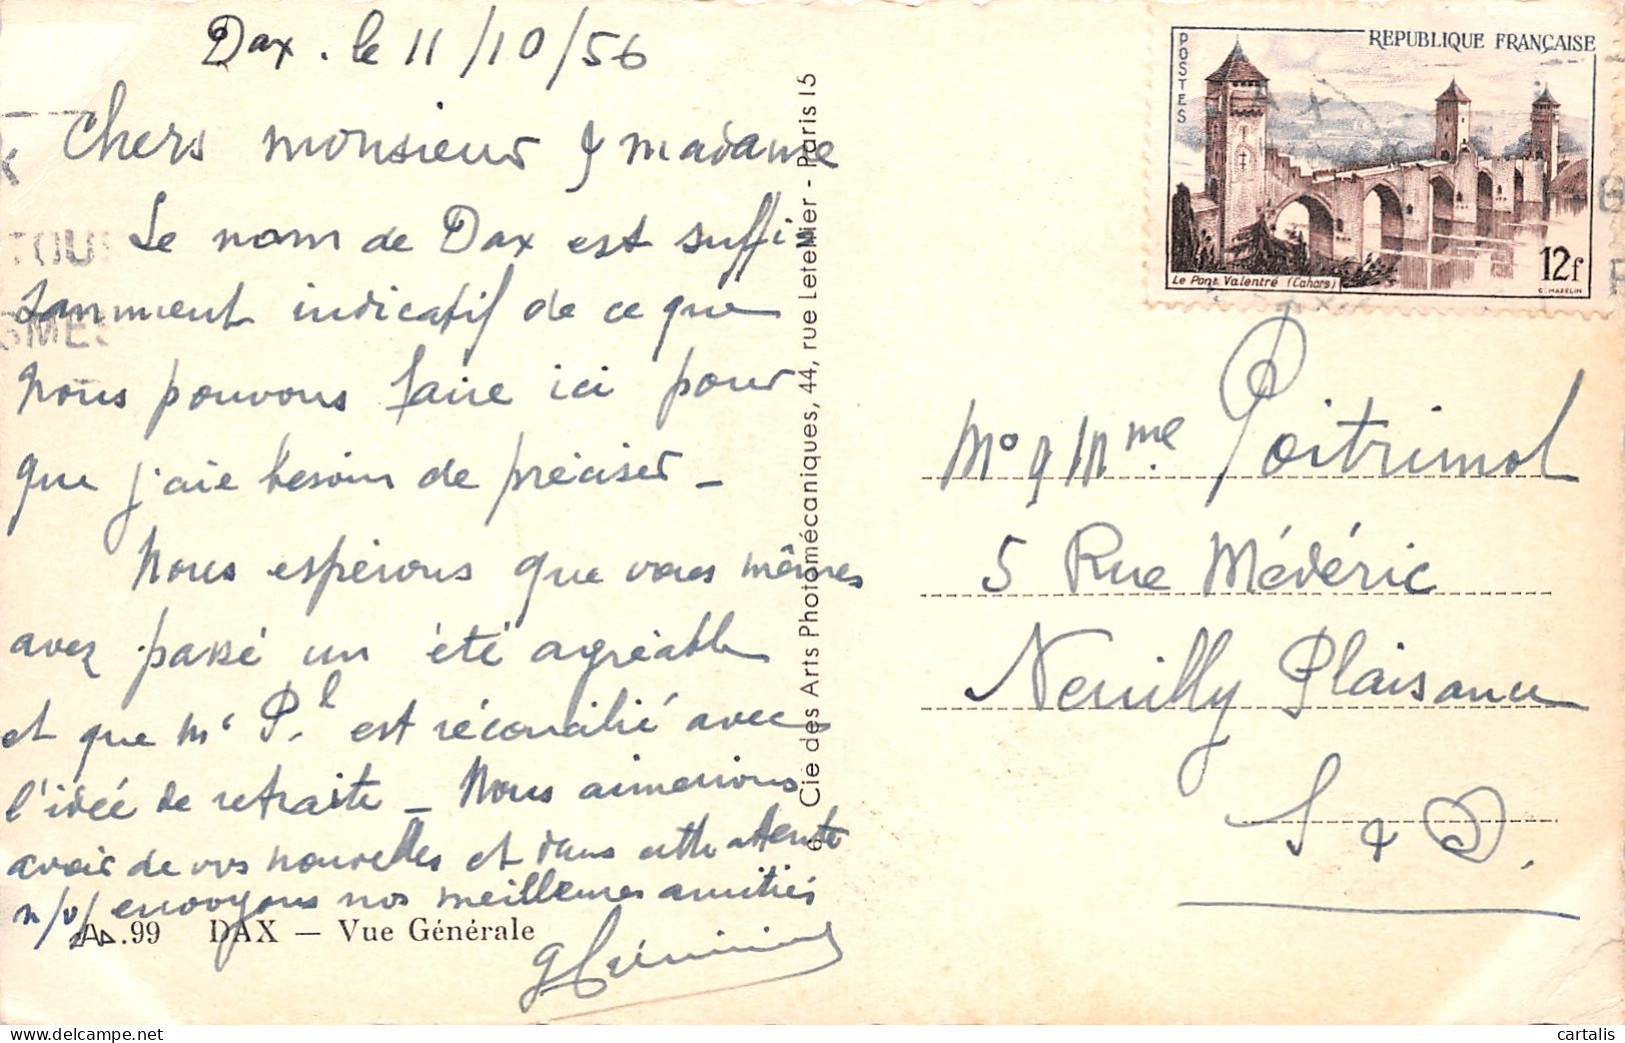 Dax . le 11/10/56
Chers monsieur & madame
Le nom de Dax est suffi
samment indicatif de ce que
nous pouvons faire ici pour
que j'aie besoin de préciser -
Nous espérons que vous mêmes
avez passé un été agréable
et que Mr P.l est réconcilié avec
l'idée de retraite - Nous aimerions
avoir de vos nouvelles et dans cette attente
n/v/ envoyons nos meilleures amitiés
A.99 DAX — Vue Générale
6 Cie des Arts Photomécaniques, 44, rue Letellier - Paris 15
POSTES
REPUBLIQUE FRANÇAISE
Le Pont Valentré (Cahors)
12f
C. MAZELIN
TOU
SMES
Mo & Mme Poitrimol
5 Rue Médéric
Neuilly Plaisance
S & O.
cartalis